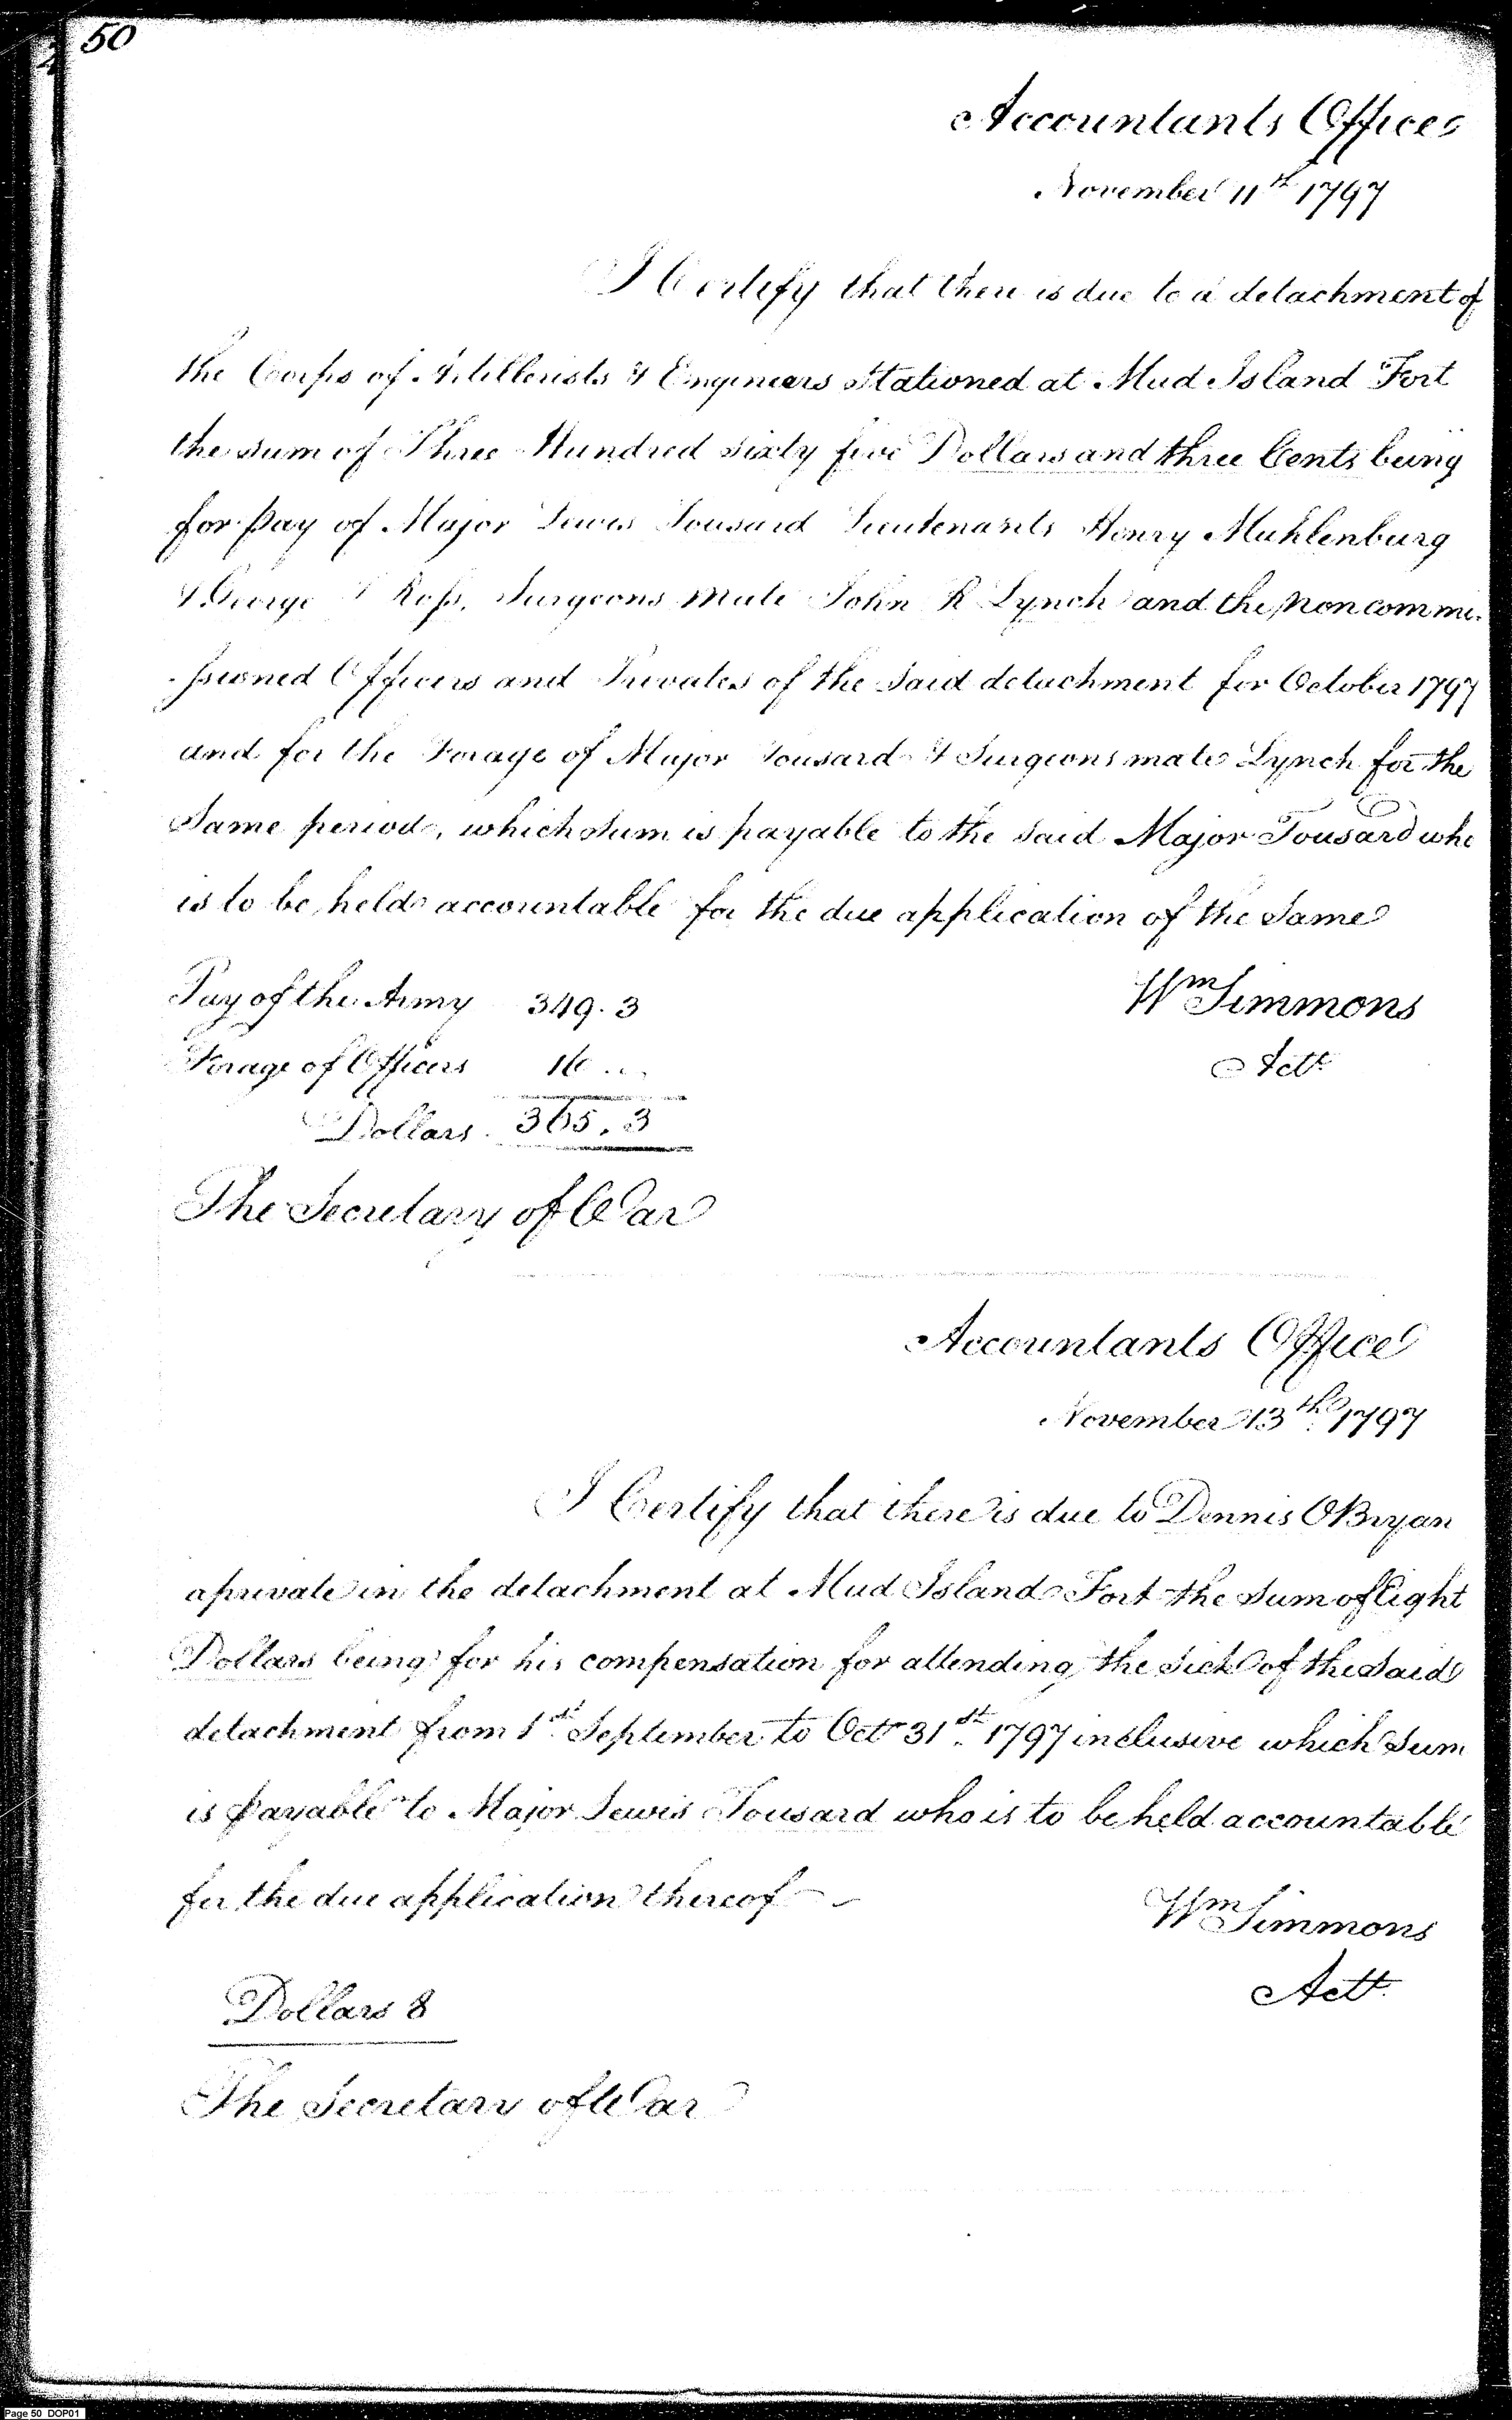 50
Accountants Office
November 11th 1797
I Certify that there is due to a detachment of
the Corps of Artillerists & Engineers Stationed at Mud Island Fort
the sum of Three Hundred sixty five Dollars and three Cents being
for pay of Major Lewis Tousard Lieutenants Henry Muhlenburg
& George Ross, Surgeons Mate John R Lynch and the non commi-
-ssioned Officers and Privates of the Said detachment for October 1797
and for the Forage of Major Tousard & Surgeons mate Lynch for the
Same period, which sum is payable to the said Major Tousard who
is to be held accountable for the due application of the Same
Pay of the Army 349.3
Wm Simmons
Forage of Officers 16 ..
Actt
Dollars 365.3
The Secretary of War
Accountants Office
November 13th 1797
I Certify that there is due to Dennis OBryan
a private in the detachment at Mud Island Fort the Sum of Eight
Dollars being for his compensation for attending the Sick of the Said
detachment from 1st September to Octr 31st 1797 inclusive which Sum
is payable to Major Lewis Tousard who is to be held accountable
for the due application thereof
Wm Simmons
Actt
Dollars 8
The Secretary of War
Page 50 DOP01